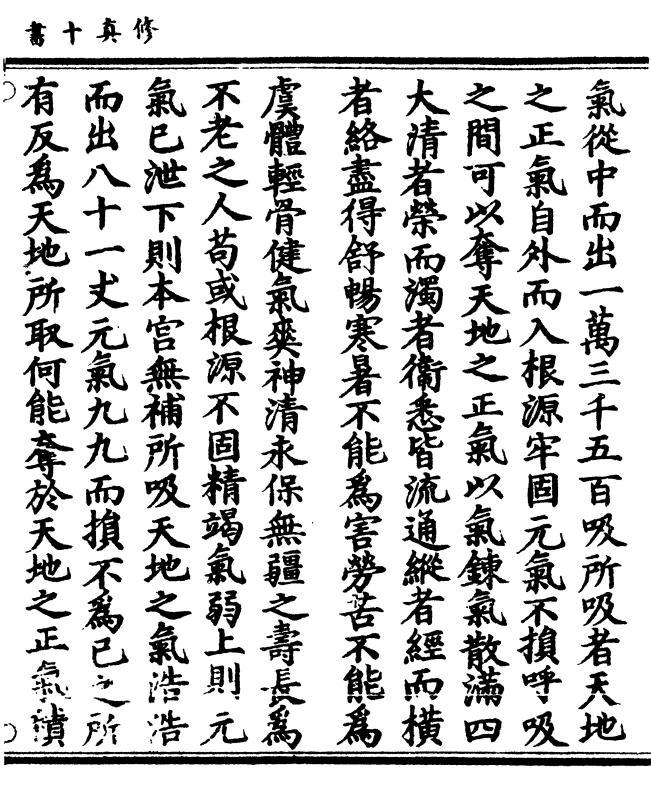 修真十書
氣從中而出一萬三千五百吸所吸者天地
之正氣自外而入根源牢固元氣不損呼吸
之間可以奪天地之正氣以氣鍊氣散滿四
大清者榮而濁者衞悉皆流通縱者經而橫
者絡盡得舒暢寒暑不能爲害勞苦不能爲
虞體輕骨健氣爽神清永保無疆之壽長爲
不老之人苟或根源不固精竭氣弱上則元
氣已泄下則本宮無補所吸天地之氣浩浩
而出八十一丈元氣九九而損不爲已之所
有反爲天地所取何能奪於天地之正氣積